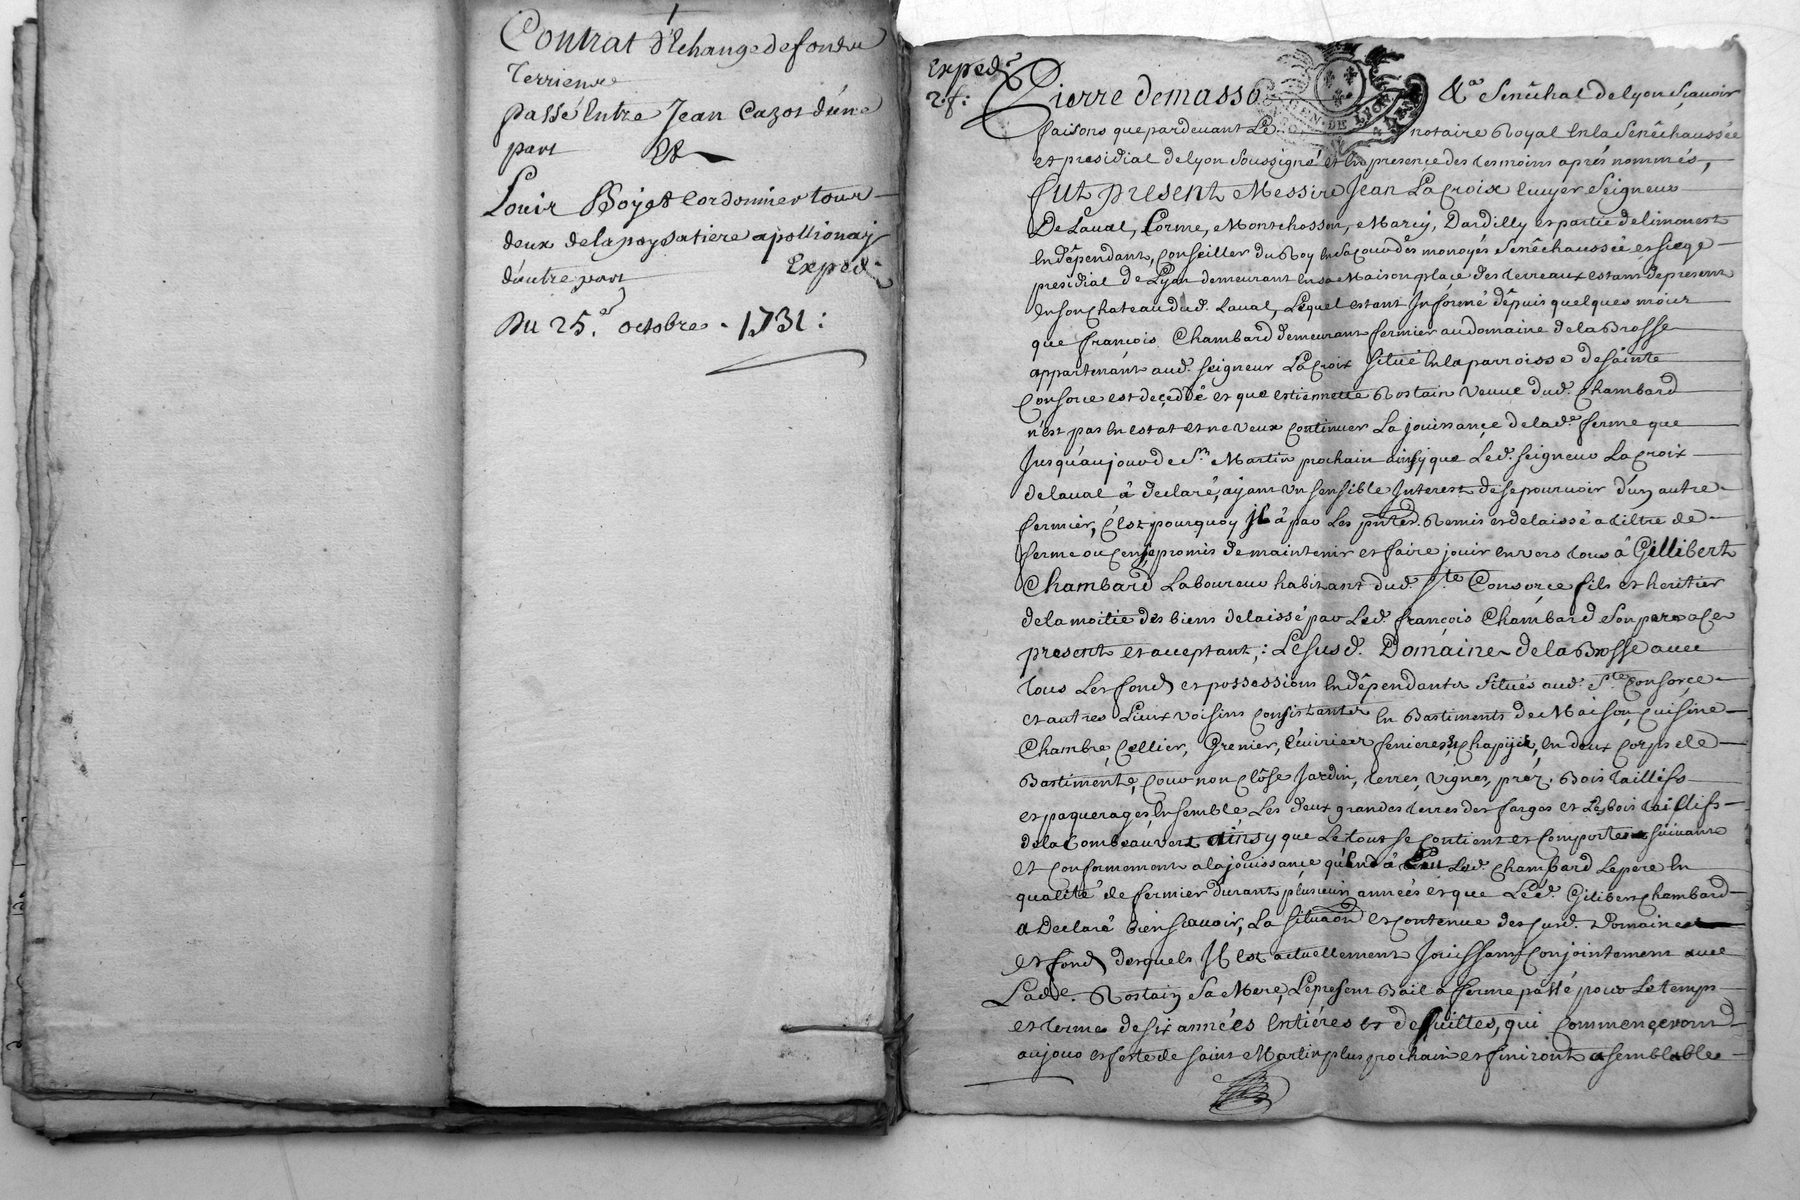 Contrat d'Echange de fond
Terrien
passé Entre Jean Cazot d'une
part Et
Louis Boyet Cordonnier tour
deux de la paysatiere apollionay
d'autre part Exped.
Du 25.e octobre 1731:
Exped.
2 f:
Pierre de masso &.a Senêchal de Lyon sçavoir
faisons que pardevant Le notaire Royal En la Senêchaussée
et presidial de Lyon soussigné et En presence des temoins aprés nommés,
fut present Messire Jean La Croix Ecuyer Seigneur
De Laval, Corme, Montchosson, Marcy, Dardilly et partie de limonest
En dêpendant, Conseiller du Roy En la Cour des monoyes Senêchaussée et siege
presidial de Lyon demeurant En sa Maison place des terreaux estant de present
En son Chateau dud. Laval, Lequel estant Informé dêpuis quelques mois
que françois Chambard demeurant fermier au domaine de la Brosse
appartenant aud. seigneur La Croix situé En la parroisse de sainte
Consorce est deceddé et que estiennette Rostain veuve dud. Chambard
n'est pas En estat et ne veux Continuer La jouissance de lad. ferme que
Jusqu'au jour de St. Martin prochain ainsy que Led. seigneur La Croix
de Laval â declaré, ayant un sensible Interest de se pourvoir d'un autre
fermier, C'est pourquoy Il â par Les pntes. Remis et delaissé a tiltre de
ferme ou Cense promis de maintenir et faire jouir envers tous â Gillibert
Chambard Laboureur habitant dud. Ste Consorce fils et heritier
de la moitie des biens delaissé par Led. françois Chambard son pere a Ce
present et acceptant,: Le susd. Domaine de la Brosse avec
tous Les fond et possessions En dêpendantes situés aud. Ste Consorce
et autres Lieux voisins Consistantes En Bastiments de Maison, Cuisine
Chambre, Cellier, Grenier, Ecuirier fenieres, Chapijt, En deux Corps de
Bastimente, Cour non Clôse Jardin, terres, vignes, préz, Bois tailliss
et paquerages, Ensemble Les deux grandes terres des farges et Le bois tailliss
de la Combeauvert ainsy que Le tout se Contient et Comporte suivant
et Conformement a la jouissance qu'En â Eu Led. Chambard Le pere En
qualité de fermier durant plusieurs années et que Led. Gilibert Chambard
a Declaré bien scavoir, La situaon et Contenue des susd. Domaine
et fond desquels Il est actuellement Jouissant Conjointement avec
Lad. Rostain sa Mere, Le present Bail a ferme passé pour Le temps
et terme de six années Entiéres et de suittes, qui Commenceront
au jour et feste de saint Martin plus prochain et finiront a semblable